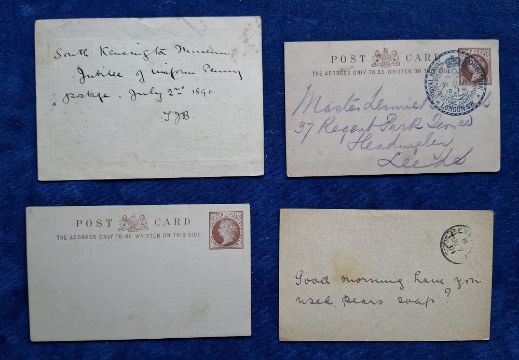 South Kensington Museum
Jubilee of uniform Penny
postage. July 2nd 1890
TJB.
POST CARD
THE ADDRESS ONLY TO BE WRITTEN ON THIS SIDE
Master Lennie
37 Regent Park Terrace
Headingley
Leeds
POST CARD
THE ADDRESS ONLY TO BE WRITTEN ON THIS SIDE
Good morning have you
used pears soap?